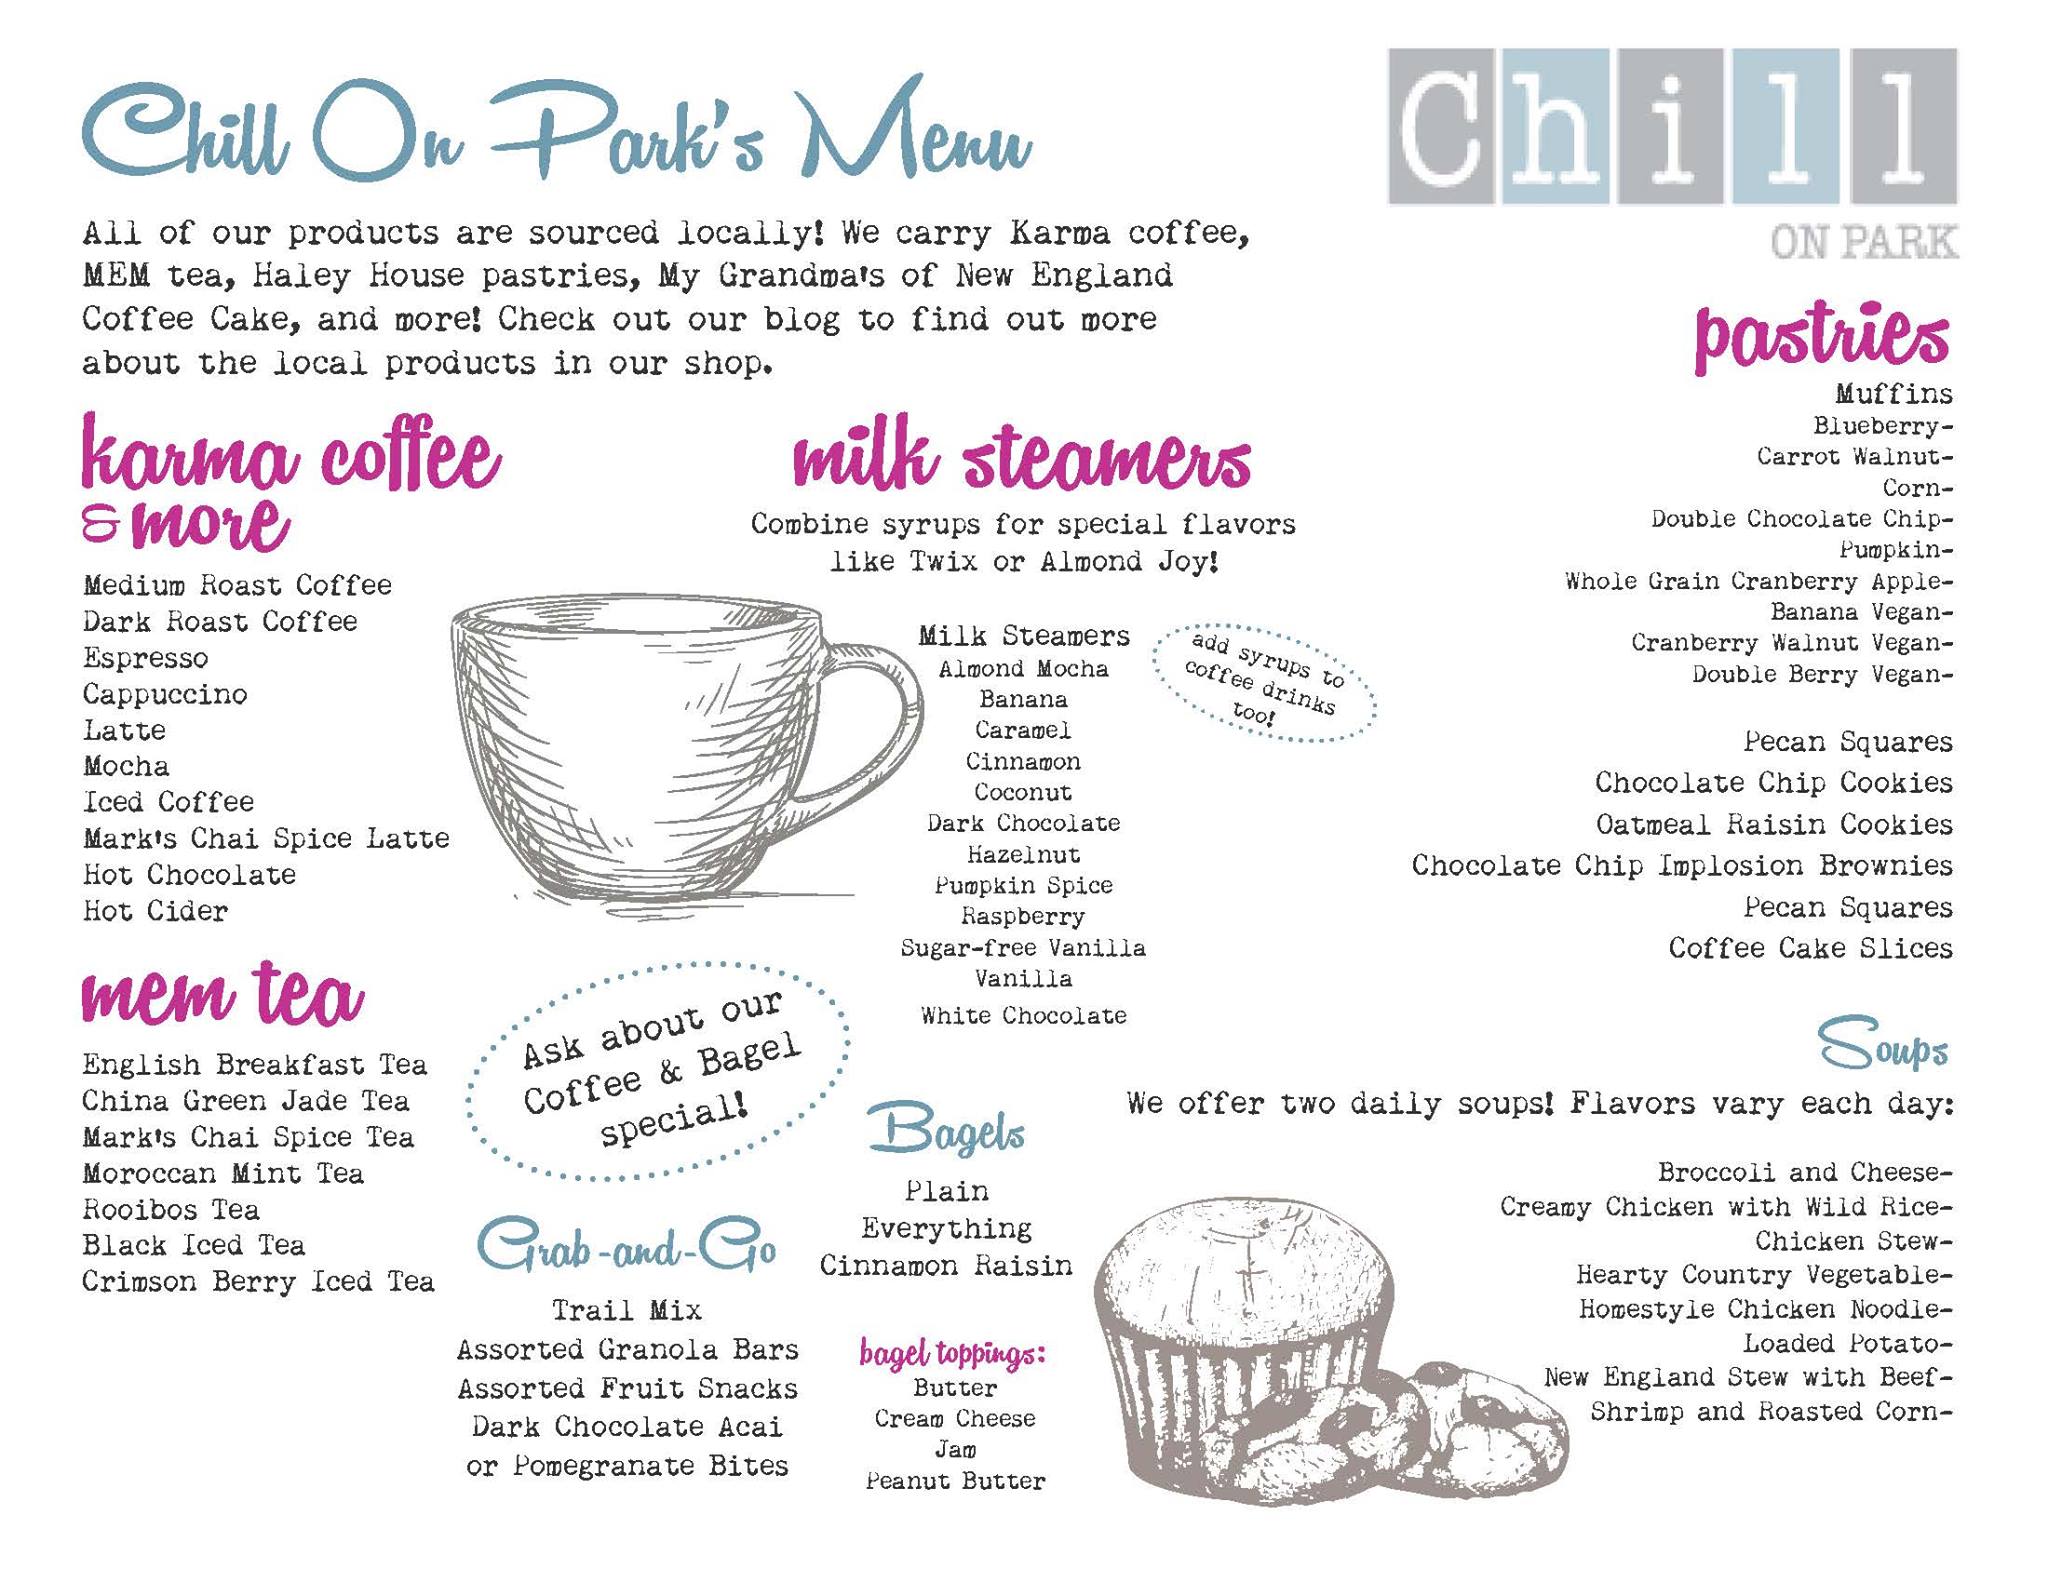 Chill On Park's Menu
Chill
ON PARK
All of our products are sourced locally! We carry Karma coffee,
MEM tea, Haley House pastries, My Grandma's of New England
Coffee Cake, and more! Check out our blog to find out more
about the local products in our shop.
karma coffee
& more
Medium Roast Coffee
Dark Roast Coffee
Espresso
Cappuccino
Latte
Mocha
Iced Coffee
Mark's Chai Spice Latte
Hot Chocolate
Hot Cider
mem tea
English Breakfast Tea
China Green Jade Tea
Mark's Chai Spice Tea
Moroccan Mint Tea
Rooibos Tea
Black Iced Tea
Crimson Berry Iced Tea
milk steamers
Combine syrups for special flavors
like Twix or Almond Joy!
Milk Steamers
Almond Mocha
Banana
Caramel
Cinnamon
Coconut
Dark Chocolate
Hazelnut
Pumpkin Spice
Raspberry
Sugar-free Vanilla
Vanilla
White Chocolate
add syrups to
coffee drinks
too!
Ask about our
Coffee & Bagel
special!
Grab-and-Go
Trail Mix
Assorted Granola Bars
Assorted Fruit Snacks
Dark Chocolate Acai
or Pomegranate Bites
Bagels
Plain
Everything
Cinnamon Raisin
bagel toppings:
Butter
Cream Cheese
Jam
Peanut Butter
pastries
Muffins
Blueberry-
Carrot Walnut-
Corn-
Double Chocolate Chip-
Pumpkin-
Whole Grain Cranberry Apple-
Banana Vegan-
Cranberry Walnut Vegan-
Double Berry Vegan-
Pecan Squares
Chocolate Chip Cookies
Oatmeal Raisin Cookies
Chocolate Chip Implosion Brownies
Pecan Squares
Coffee Cake Slices
Soups
We offer two daily soups! Flavors vary each day:
Broccoli and Cheese-
Creamy Chicken with Wild Rice-
Chicken Stew-
Hearty Country Vegetable-
Homestyle Chicken Noodle-
Loaded Potato-
New England Stew with Beef-
Shrimp and Roasted Corn-